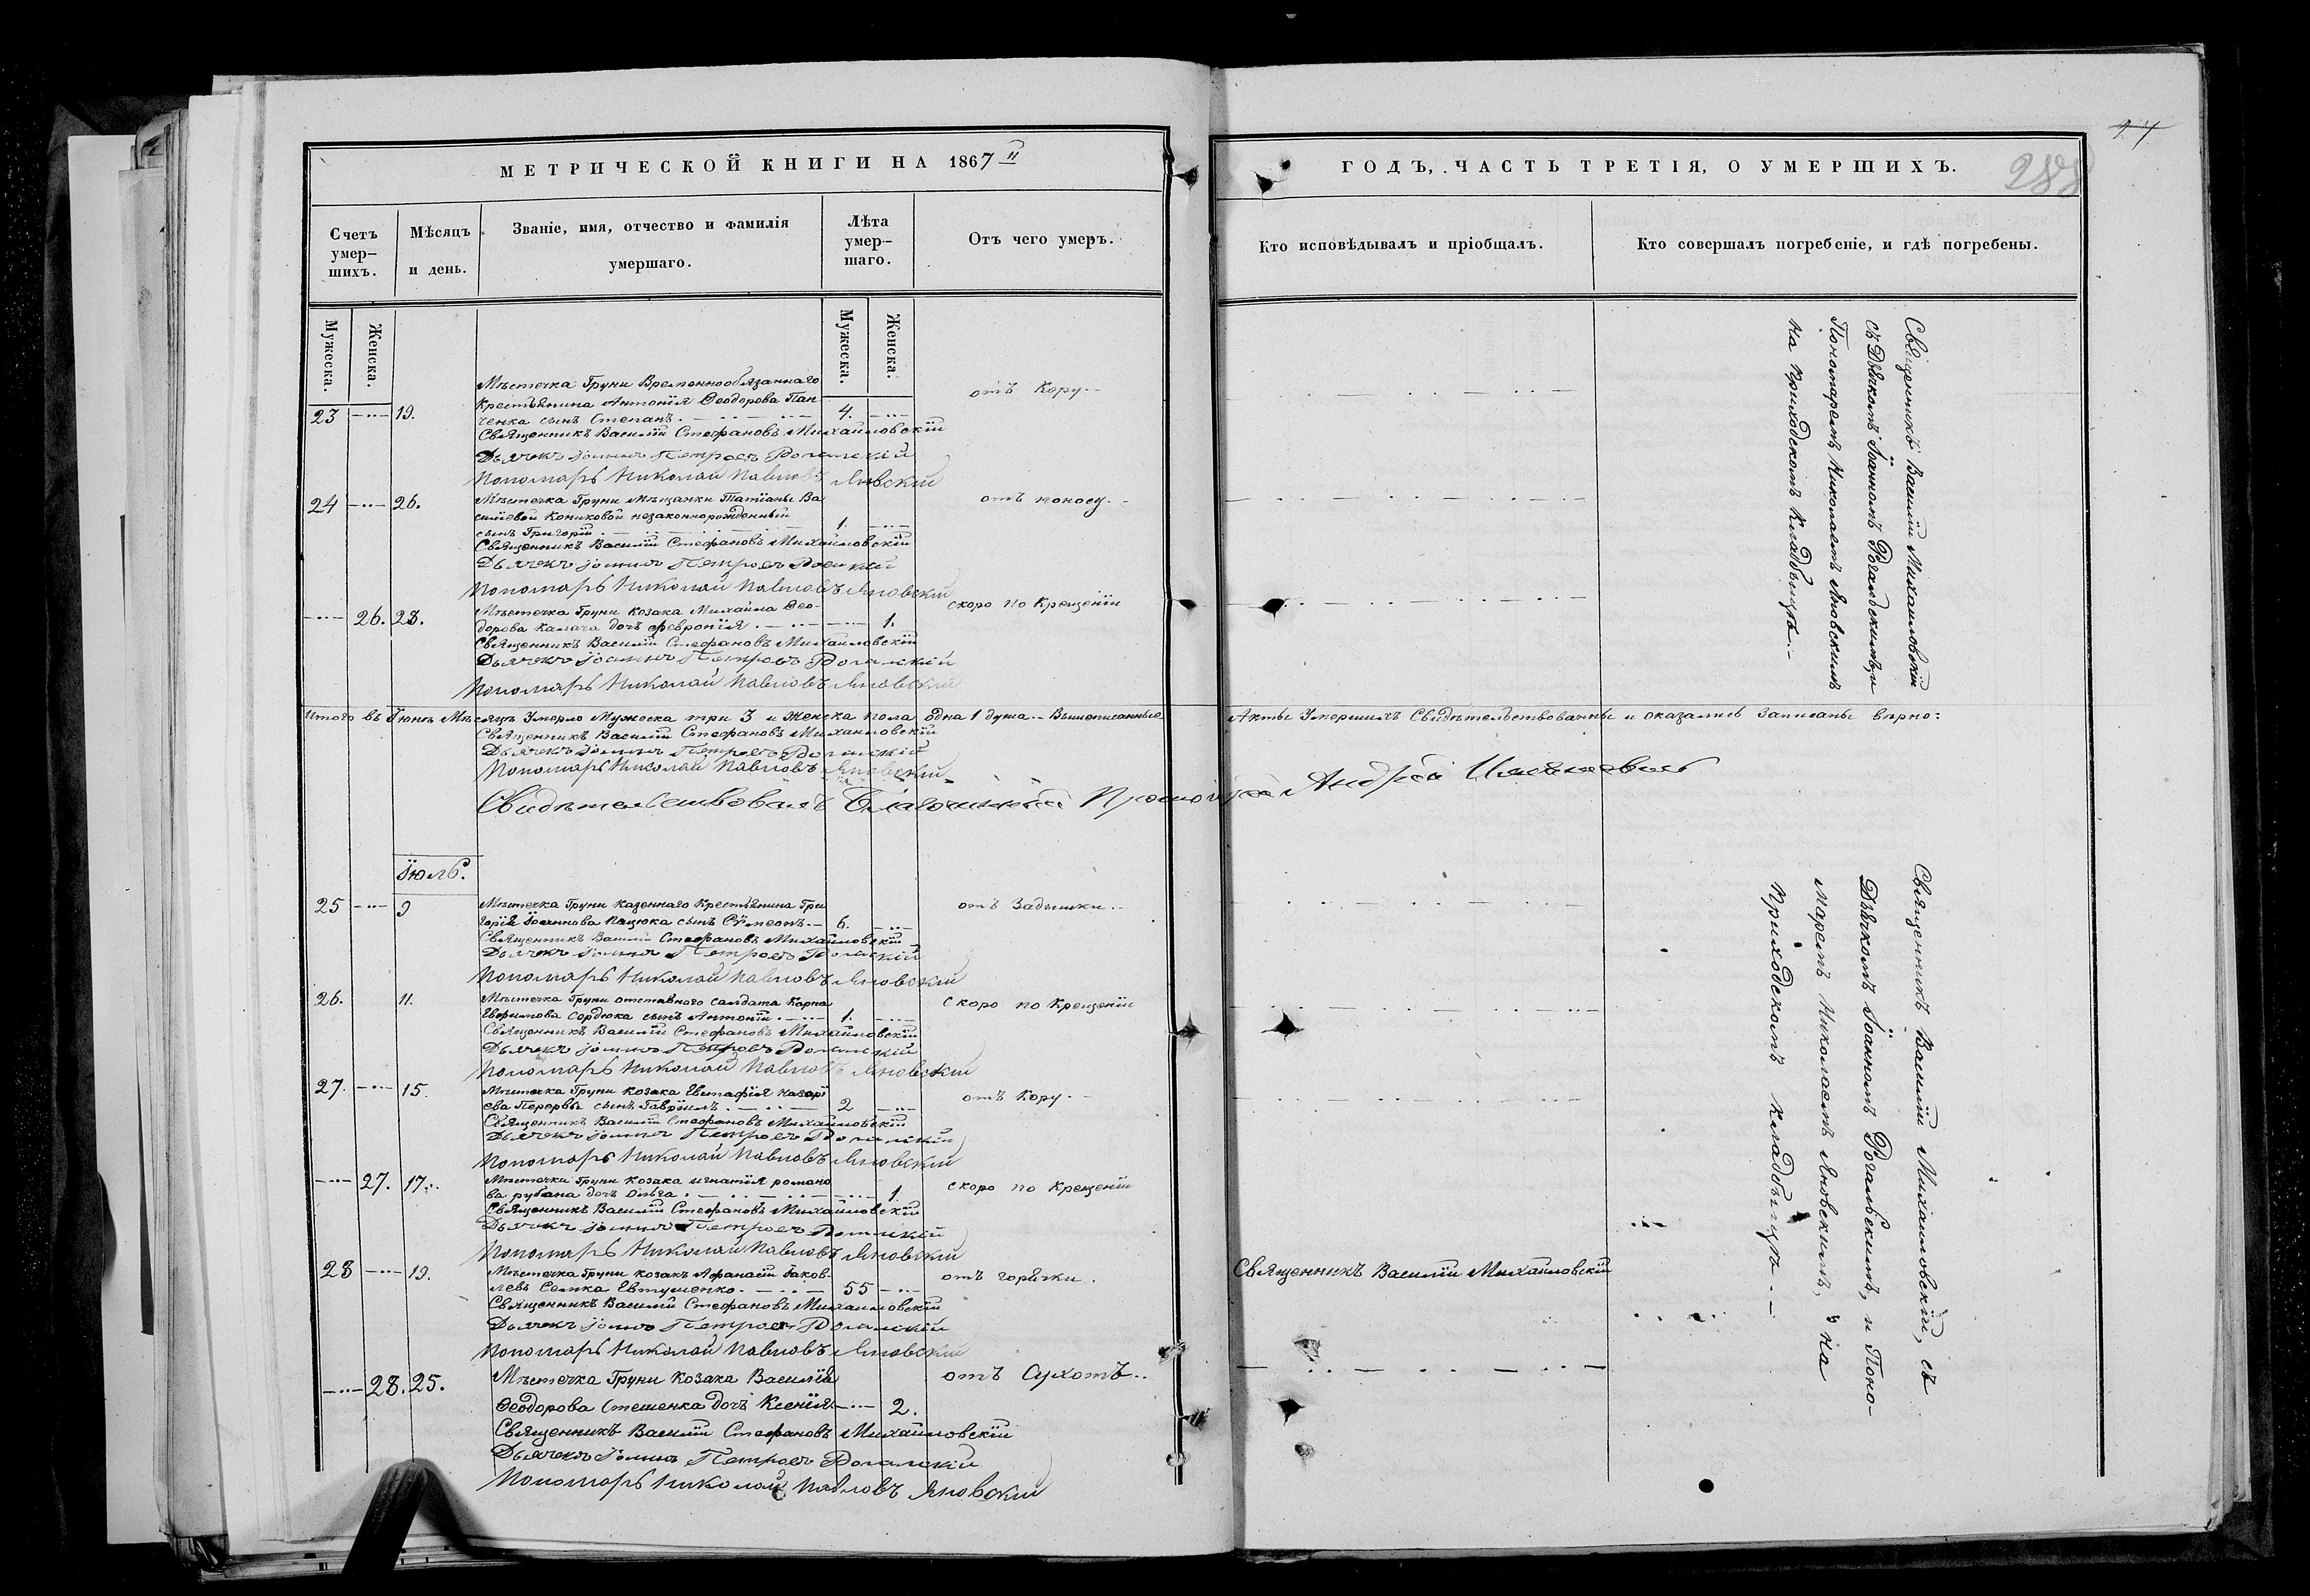 МЕТРИЧЕСКОЙ КНИГИ НА 1867
Счетъ умер-шихъ.
Мѣсяцъ и день.
Званіе, имя, отчество и фамилія умершаго.
Лѣта умер-шаго.
Отъ чего умеръ.
Мужеска.
Женска.
Мужеска.
Женска.
Мѣстечка Груни Временнообязаннаго
23 19. Крестьянина Антонія Ѳеодорова Пан 4. отъ Кору
ченка сынъ Степанъ
Священникъ Василій Стефановъ Михайловскій
Дьячекъ Іоаннъ Петровъ Рогальскій
Пономарь Николай Павловъ Яновскій
24 26. Мѣстечка Груни Мѣщанки Татіаны Ва отъ поносу
силіевой Кониковой незаконнорожденный
сынъ Григорій 1.
Священникъ Василій Стефановъ Михайловскій
Дьячекъ Іоаннъ Петровъ Рогальскій
Пономарь Николай Павловъ Яновскій
26. 28. Мѣстечка Груни козака Михаила Ѳео- скоро по Крещеніи
дорова Калача дочь Февронія 1.
Священникъ Василій Стефановъ Михайловскій
Дьячекъ Іоаннъ Петровъ Рогальскій
Пономарь Николай Павловъ Яновскій
Итого въ Іюнѣ Мѣсяцѣ Умерло Мужеска три 3 и Женска пола одна 1 душа. Вышеписанные
Священникъ Василій Стефановъ Михайловскій
Дьячекъ Іоаннъ Петровъ Рогальскій
Пономарь Николай Павловъ Яновскій
Свидѣтельствовалъ Благочинный
Іюль.
25 9 Мѣстечка Груни казеннаго Крестьянина Гри отъ Задышки
горія Іоаннова Пацюка сынъ Сѵмеонъ 6.
Священникъ Василій Стефановъ Михайловскій
Дьячекъ Іоаннъ Петровъ Рогальскій
Пономарь Николай Павловъ Яновскій
26. 11. Мѣстечка Груни отставного салдата Карпа скоро по Крещеніи
Евфимова Сердюка сынъ Антоній 1.
Священникъ Василій Стефановъ Михайловскій
Дьячекъ Іоаннъ Петровъ Рогальскій
Пономарь Николай Павловъ Яновскій
27. 15. Мѣстечка Груни козака Евстафія Назарі отъ Кору
ева Перервы сынъ Гавріилъ 2
Священникъ Василій Стефановъ Михайловскій
Дьячекъ Іоаннъ Петровъ Рогальскій
Пономарь Николай Павловъ Яновскій
27. 17. Мѣстечка Груни козака Игнатія романо скоро по Крещеніи
ва рубана дочь Ольга 1.
Священникъ Василій Стефановъ Михайловскій
Дьячекъ Іоаннъ Петровъ Рогальскій
Пономарь Николай Павловъ Яновскій
28 19. Мѣстечка Груни козакъ Афанасій Іаков- отъ горячки.
левъ Евтушенко 55
Священникъ Василій Стефановъ Михайловскій
Дьячекъ Іоаннъ Петровъ Рогальскій
Пономарь Николай Павловъ Яновскій
28. 25. Мѣстечка Груни Козака Василія отъ Сухотъ
Ѳеодорова Стешенка дочь Ксенія 2.
Священникъ Василій Стефановъ Михайловскій
Дьячекъ Іоаннъ Петровъ Рогальскій
Пономарь Николай Павловъ Яновскій
ГОДЪ, ЧАСТЬ ТРЕТІЯ, О УМЕРШИХЪ.
Кто исповѣдывалъ и пріобщалъ.
Кто совершалъ погребеніе, и гдѣ погребены.
Священникъ Василій Михайловскій
съ Дьячкомъ Іоанномъ Рогальскимъ, и
Пономаремъ Николаемъ Яновскимъ
на приходскомъ кладбищѣ.
Акты Умершихъ Свидѣтельствованны и оказались Записаны вѣрно:
Андрей
Священникъ Василій Михайловскій, съ
Дьячкомъ Іоанномъ Рогальскимъ, и Поно-
маремъ Николаемъ Яновскимъ, на
приходскомъ кладбищѣ.
Священникъ Василій Михайловскій